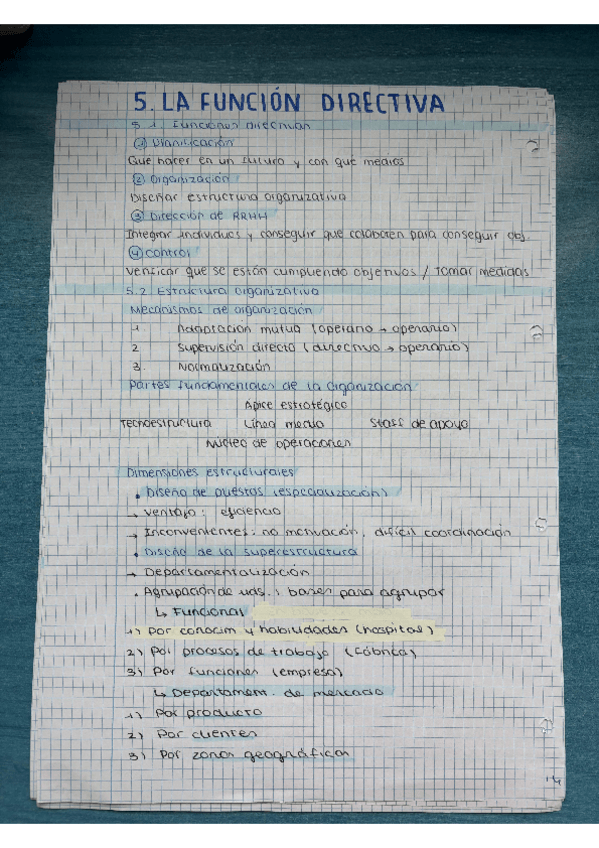 5. LA FUNCIÓN DIRECTIVA
5.1. Funciones directivas
① Planificación
Que hacer en un futuro y con qué medios
② Organización
Diseñar estructura organizativa
③ Dirección de RRHH
Integrar individuos y conseguir que colaboren para conseguir obj.
④ Control
Verificar que se están cumpliendo objetivos / Tomar medidas
5.2. Estructura organizativa
Mecanismos de organización
1. Adaptación mutua (operario → operario)
2. Supervisión directa (directivo → operario)
3. Normalización
Partes fundamentales de la organización
Ápice estratégico
Tecnoestructura Línea media Staff de apoyo
Núcleo de operaciones
Dimensiones estructurales
• Diseño de puestos (especialización)
→ Ventaja: eficiencia
→ Inconvenientes: no motivación, difícil coordinación
• Diseño de la superestructura
→ Departamentalización
• Agrupación de uds.: bases para agrupar
↳ Funcional
1) Por conocim y habilidades (hospital)
2) Por procesos de trabajo (fábrica)
3) Por funciones (empresa)
↳ Departament. de mercado
1) Por producto
2) Por clientes
3) Por zonas geográficas